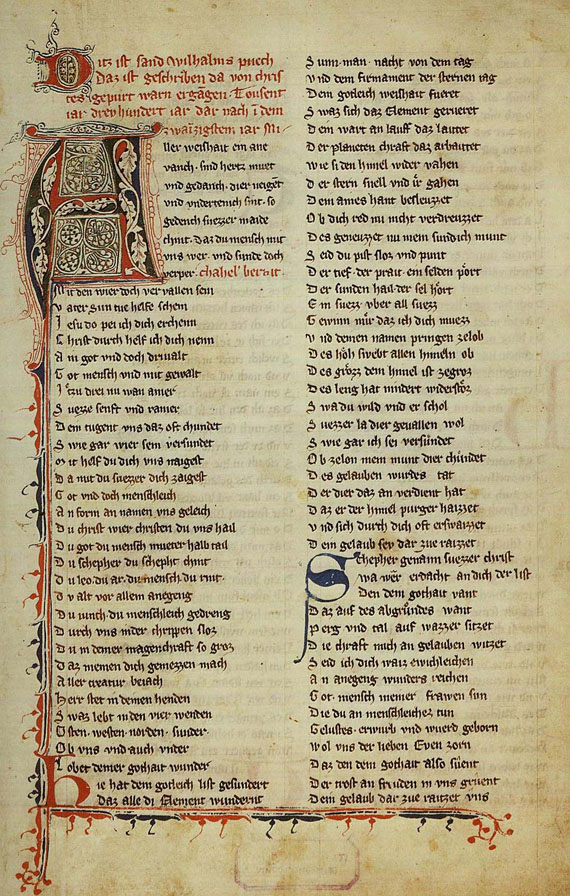 Ditz ist sand Wilhalms puech
Daz ist geschriben da von chris
tes gepurt warn ergangen Tousent
iar drevhundert iar dar nach ī dem
zwainzigstem iar
Aller weishait ein ane
vanch · sind hertz muet
vnd gedanch · dier neiget
vnd vndertenich sint · so
gedench suezzer maide
chint · daz du mensch mit
vns wer · vnd sunde doch
verper · chahel beriͤt ·
Mit den wier doch ver vallen sein
Vater sun tue helfe schein
Iesu do pei ich dich erchenn
Christ durch helf ich dich nenn
Ain got vnd doch driualt
Got mensch vnd mit gewalt
I tzu drei nu wan ainer
Suezze senft vnd rainer
Dem tugent vns daz oft chundet
Swie gar wier sein versundet
mit helf du dich vns naigest
Da mit du suezzer dich zaigest
Got vnd doch menschleich
An form an namen vns geleich
Du christ wier christen du vns hail
Du got du mensch mueter halb tail
Du schepher du schepht chint
Du leo · du ar · du mensch du rint ·
Dv alt vor allem anegeng
Du iunch · du menschleich gedreng
Durch vns in der chrippen sloz
Du in deiner magenchraft so groz
Daz niemen dich gemezzen mach
Aller creatur beiach
Herr stet in deinen henden
Swaz lebt in den vier wenden
Osten · westen · norden · sunder ·
Ob vns vnd auch vnder
Lobet deiner gothait wunder
Hie hat dem gotleich list gesundert
Daz alle di Element wundernt
Sunn · man · nacht von dem tag
Vnd dem firmament der sternen iag
Dem gotleich weishait fueret
Swaz sich daz Element gerueret
Dein wart an lauff daz lautet
Der planeten chraft daz arbaittet
Wie si den himel wider vahen
Der stern snell vnd ir gahen
Dein aines hant besleuzzet
Ob dich red nu nicht verdreuzzet
Des geneuzzet nu mein sundich munt
Seid du pist sloz vnd punt
Der tief · der prait · ein selden port
Der sunden hail · der sel hort
Ein suezz vber all suezz
Gewinn mir daz ich dich muezz
Vnd deinen namen pringen ze lob
Des hoh swebt allen himeln ob
Des grozz dem himel ist ze groz
Des leng hat nindert widerstoz
Swa du wild vnd er schol
Suezzer la dier geuallen wol
Swie gar ich sei versundet
Ob ze lon mein munt dier chundet
Des gelauben wurdes tat
Der dier daz an verdient hat
Daz er der himel purger haizzet
Vnd sich durch dich oft erswaizzet
Dein gelaub sey dar zue raizzet
Schepher genam suezzer christ
Swa wer erdacht an dich der list
Den dein gothait vant
Daz auf des abgrundes want
Perg vnd tal auf wazzer sitzet
Die chraft mich an gelauben witzet
Seid ich dich waiz ewichleichen
An anegeng wunders reichen
Got · mensch meiner frawen sun
Die du an menschleicher tun
Gelustes · erwurb vnd wuerd geborn
Wol vns der lieben Even zorn
Daz den dein gothait also suent
Der trost an freuden in vns gruent
Dein gelaub dar zue raitzet vns